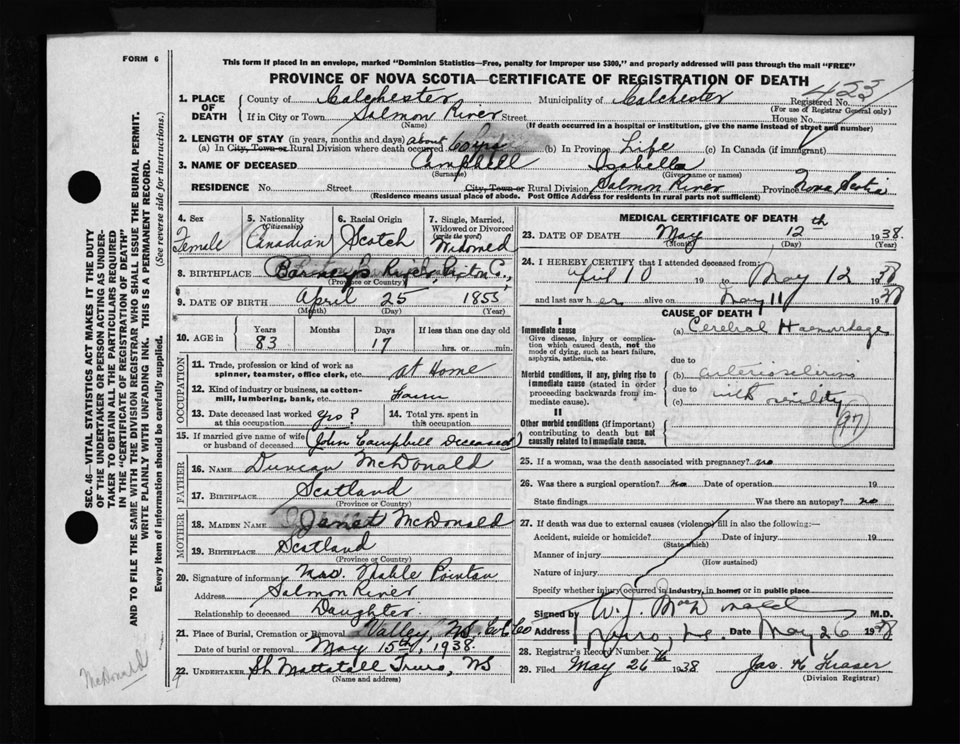 FORM 6
This form if placed in an envelope, marked "Dominion Statistics—Free, penalty for improper use $300," and properly addressed will pass through the mail "FREE"
PROVINCE OF NOVA SCOTIA—CERTIFICATE OF REGISTRATION OF DEATH
423
1. PLACE OF DEATH
County of Colchester Municipality of Colchester Registered No.
(For use of Registrar General only)
If in City or Town Salmon River Street House No.
(Name) (If death occurred in a hospital or institution, give the name instead of street and number)
2. LENGTH OF STAY (in years, months and days) about
(a) In City, Town or Rural Division where death occurred (b) In Province Life (c) In Canada (if immigrant)
3. NAME OF DECEASED Campbell Isabella
(Surname) (Given name or names)
RESIDENCE No. Street City, Town or Rural Division Salmon River Province Nova Scotia
(Residence means usual place of abode. Post Office Address for residents in rural parts not sufficient)
4. Sex Female
5. Nationality (Citizenship) Canadian
6. Racial Origin Scotch
7. Single, Married, Widowed or Divorced (write the word) Widowed
8. BIRTHPLACE Barneys River, Pictou Co.,
(Province or Country)
9. DATE OF BIRTH April 25 1855
(Month) (Day) (Year)
10. AGE in Years 83 Months Days 17 If less than one day old hrs. or min.
OCCUPATION
11. Trade, profession or kind of work as spinner, teamster, office clerk, etc. at Home
12. Kind of industry or business, as cotton-mill, lumbering, bank, etc. Farm
13. Date deceased last worked at this occupation yrs?
14. Total yrs. spent in this occupation
15. If married give name of wife or husband of deceased (John Campbell Deceased)
FATHER
16. NAME Duncan McDonald
17. BIRTHPLACE Scotland
(Province or Country)
MOTHER
18. MAIDEN NAME Janet McDonald
19. BIRTHPLACE Scotland
(Province or Country)
20. Signature of informant Mrs. Noble
Address Salmon River
Relationship to deceased Daughter.
21. Place of Burial, Cremation or Removal Valley, NS, Col. Co
Date of burial or removal May 15th, 1938.
22. UNDERTAKER Mattatall Truro, NS
(Name and address)
MEDICAL CERTIFICATE OF DEATH
23. DATE OF DEATH May 12th 1938.
(Month) (Day) (Year)
24. I HEREBY CERTIFY that I attended deceased from:
April 10 19 to May 12 1938
and last saw her alive on May 11 1938
CAUSE OF DEATH
I
Immediate cause
Give disease, injury or complication which caused death, not the mode of dying, such as heart failure, asphyxia, asthenia, etc.
(a) Cerebral Haemorhage
due to
Morbid conditions, if any, giving rise to immediate cause (stated in order proceeding backwards from immediate cause).
(b) arteriosclerosis
due to
(c) with senility
97
II
Other morbid conditions (if important) contributing to death but not causally related to immediate cause.
25. If a woman, was the death associated with pregnancy? no
26. Was there a surgical operation? no Date of operation 19
State findings Was there an autopsy? no
27. If death was due to external causes (violence) fill in also the following:—
Accident, suicide or homicide? Date of injury 19
(State which)
Manner of injury
(How sustained)
Nature of injury
Specify whether injury occurred in industry, in home, or in public place
Signed by W. J. MacDonald M.D.
Address Truro, Date May 26 1938
28. Registrar's Record Number
29. Filed May 26th 1938 Jas. H Fraser
(Division Registrar)
SEC. 46—VITAL STATISTICS ACT MAKES IT THE DUTY
OF THE UNDERTAKER OR PERSON ACTING AS UNDER-
TAKER TO OBTAIN ALL THE PARTICULARS REQUIRED
IN THE "CERTIFICATE OF REGISTRATION OF DEATH"
AND TO FILE THE SAME WITH THE DIVISION REGISTRAR WHO SHALL ISSUE THE BURIAL PERMIT.
WRITE PLAINLY WITH UNFADING INK. THIS IS A PERMANENT RECORD.
Every item of information should be carefully supplied. (See reverse side for instructions.)
McDonald